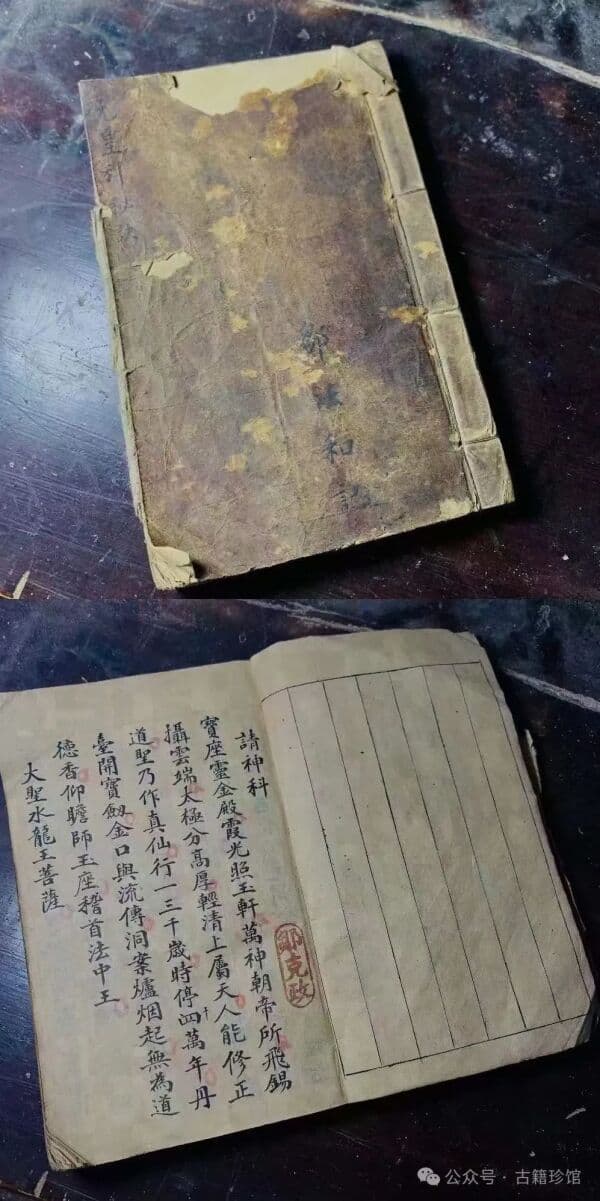 皇
鄒法和記
請神科
寶座靈金殿霞光照玉軒萬神朝帝所飛錫
攝雲端太極分高厚輕清上屬天人能修正
道聖乃作真仙行一三千歲時停四十萬年丹
臺開寶劒金口與流傳洞案爐烟起無為道
德香仰瞻師玉座稽首法中王
大聖水龍王菩薩
鄒克政
公众号·古籍珍馆